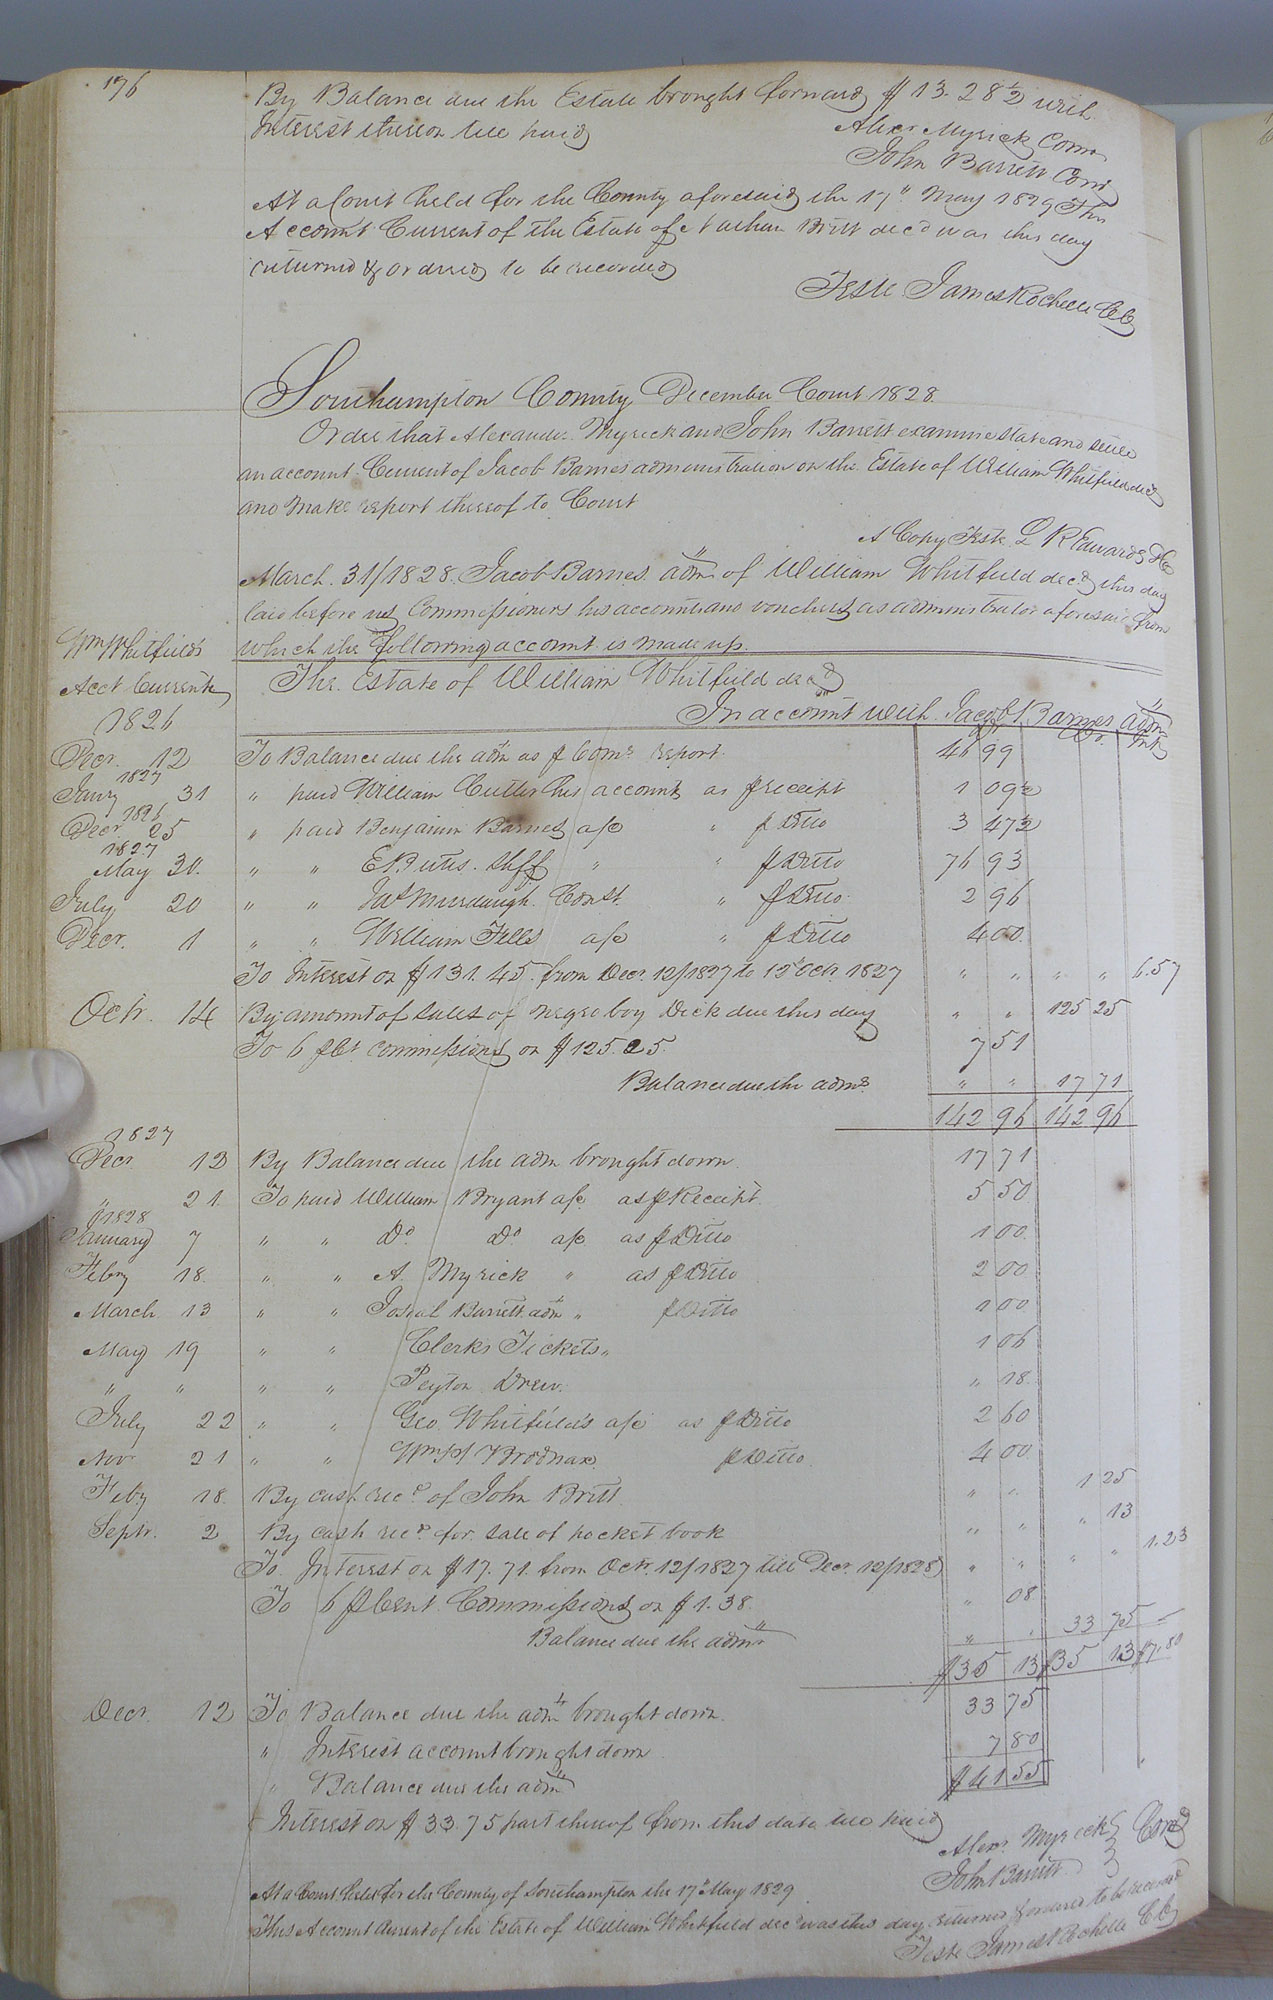 176
By Balance due the Estate brought forward $ 13.28½ with
Interest thereon till paid
Alexr Myrick Comr
John Barrett Comr
At a Court held for the County aforesaid the 17" May 1829 This
Account Current of the Estate of Nathan Britt decd was this day
returned & ordered to be recorded
Teste James Rochelle CC
Southampton County December Court 1828
Order that Alexander Myrick and John Barrett examine state and settle
an account Current of Jacob Barnes administration on the Estate of William Whitfield decd
and make report thereof to Court
A Copy Teste L R Edwards DC
March 31/1828. Jacob Barnes adm of William Whitfield decd this day
laid before us Commissioners his accounts and vouchers as administrator aforesaid from
which the following account is made up.
Wm Whitfield's
Acct Current
The Estate of William Whitfield decd
In account with Jacob Barnes adm
1826 Dr Cr. Int
Decr. 12 To Balance due the adm as p Comrs report 46 99
1827
Jany 31 " paid William Cutler his account as p receipt 1 09½
1826
Decr 25 " paid Benjamin Barnes a/c " p Ditto 3 47½
1827
May 30. " " E Butts Shff " " p Ditto 76 93
July 20 " " Jas Murdaugh Const. " p Ditto 2 96
Decr. 1 " " William Fells a/c " p Ditto 4 00
To Interest on $131.45 from Decr 12/1827 to 12 Octr 1827 " " " " 6.57
Octr. 14 By amount of sales of negro boy Dick due this day " " 125 25
To 6 p Ct commissions on $125.25. 7 51
Balance due the adms " " 17 71
142 96 142 96
1827
Decr 12 By Balance due the adm brought down 17 71
" 21. To paid William Bryant a/c as p Receipt 5 50
1828
January 7 " " Do Do a/c as p Ditto 1 00
Feby 18. " " A. Myrick " as p Ditto 2 00
March 13 " " Josiah Barrett adm " p Ditto 1 00
May 19 " " Clerks Tickets " 1 06
" " " " Peyton Drew. " 18
July 22 " " Geo Whitfield's a/c as p Ditto 2 60
Nov 21 " " Wm H Brodnax p Ditto 4 00
Feby 18. By cash recd of John Britt " " 1 25
Septr. 2 By cash recd for sale of pocket book " " " 13
To Interest on $17.71 from Octr. 12/1827 till Decr 12/1828 " " " " 1.23
To 6 p Cent Commissions on $1.38 " 08
Balance due the adm " " 33 75
$35 13 $35 13 $7.80
Decr. 12 To Balance due the adm brought down. 33 75
" Interest account brought down 7 80
" Balance due the adm $41 55
Interest on $33.75 part thereof from this date till paid
Alexr Myrick } Comrs
John Barrett }
At a Court held for the County of Southampton the 17" May 1829
This Account Current of the Estate of William Whitfield decd was this day returned & ordered to be recorded
Teste James Rochelle CC